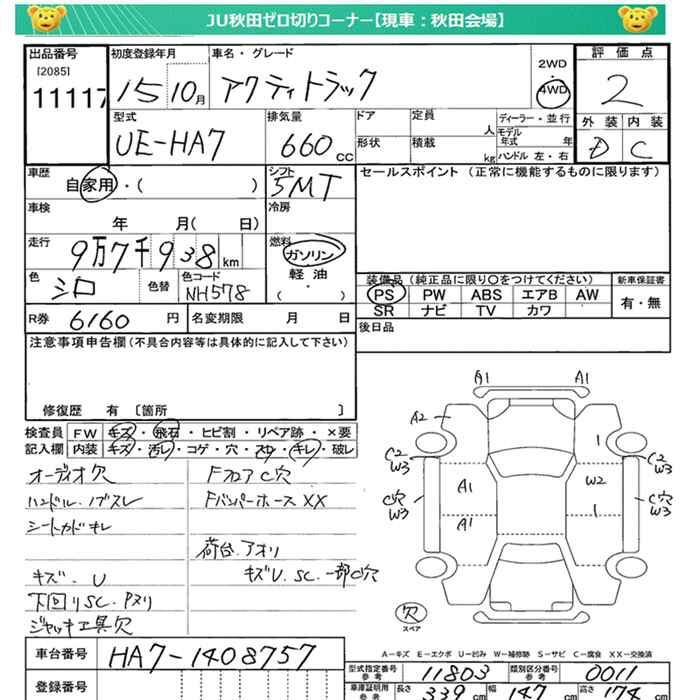 JU秋田ゼロ切りコーナー【現車：秋田会場】
出品番号 初度登録年月 車名・グレード 2WD 評価点
[2085]
11117 15 10月 アクティトラック 4WD 2
型式 排気量 ドア 定員 人 ディーラー・並行 外装 内装
UE-HA7 660 cc 形状 積載 kg モデル年式 年 ハンドル 左・右 D C
車歴 自家用・( ) シフト 5MT セールスポイント (正常に機能するものに限ります)
車検 年 月( 日) 冷房
走行 9万7千938 km 燃料 ガソリン
軽油
( ・ )
色 シロ 色替 色コード NH578
装備品 (純正品に限り〇をつけてください) 新車保証書
PS PW ABS エアB AW 有・無
SR ナビ TV カワ
R券 6160 円 名変期限 月 日 後日品
注意事項申告欄 (不具合内容等は具体的に記入して下さい)
修復歴 有 [箇所 ]
検査員 FW キズ・飛石・ヒビ割・リペア跡・×要
記入欄 内装 キズ・汚レ・コゲ・穴・スレ・キレ・破レ
オーディオ欠 Fフロア C穴
ハンドル・ノブスレ Fバンパーホース XX
シートカドキレ
荷台、アオリ
キズ、U キズU、SC、一部C穴
下回りSC、Pヌリ
ジャッキ工具欠
A1 A1
A2 1
C2 W3 C2 W3
A1 W2
C穴 W3 C穴 W3
A1 1
欠
スペア
A-キズ E-エクボ U-凹み W-補修跡 S-サビ C-腐食 XX-交換済
車台番号 HA7-1408757
型式指定番号 参考 11803 類別区分番号 参考 0011
登録番号
車庫証明用 参考 長さ 339 cm 幅 147 cm 高さ 174 cm